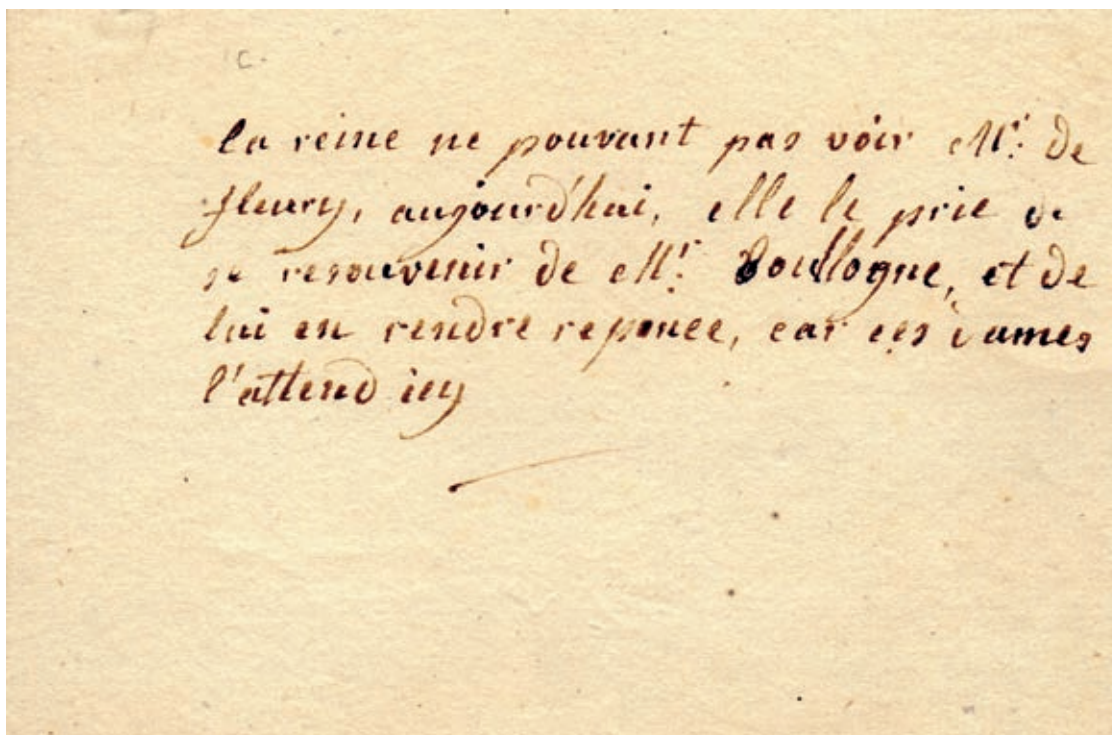 c.
la reine ne pouvant pas voir Mr. de
fleury, aujourd'hui, elle le prie de
se resouvenir de Mr. Boullogne, et de
lui en rendre reponce, car ces dames
l'attend icy